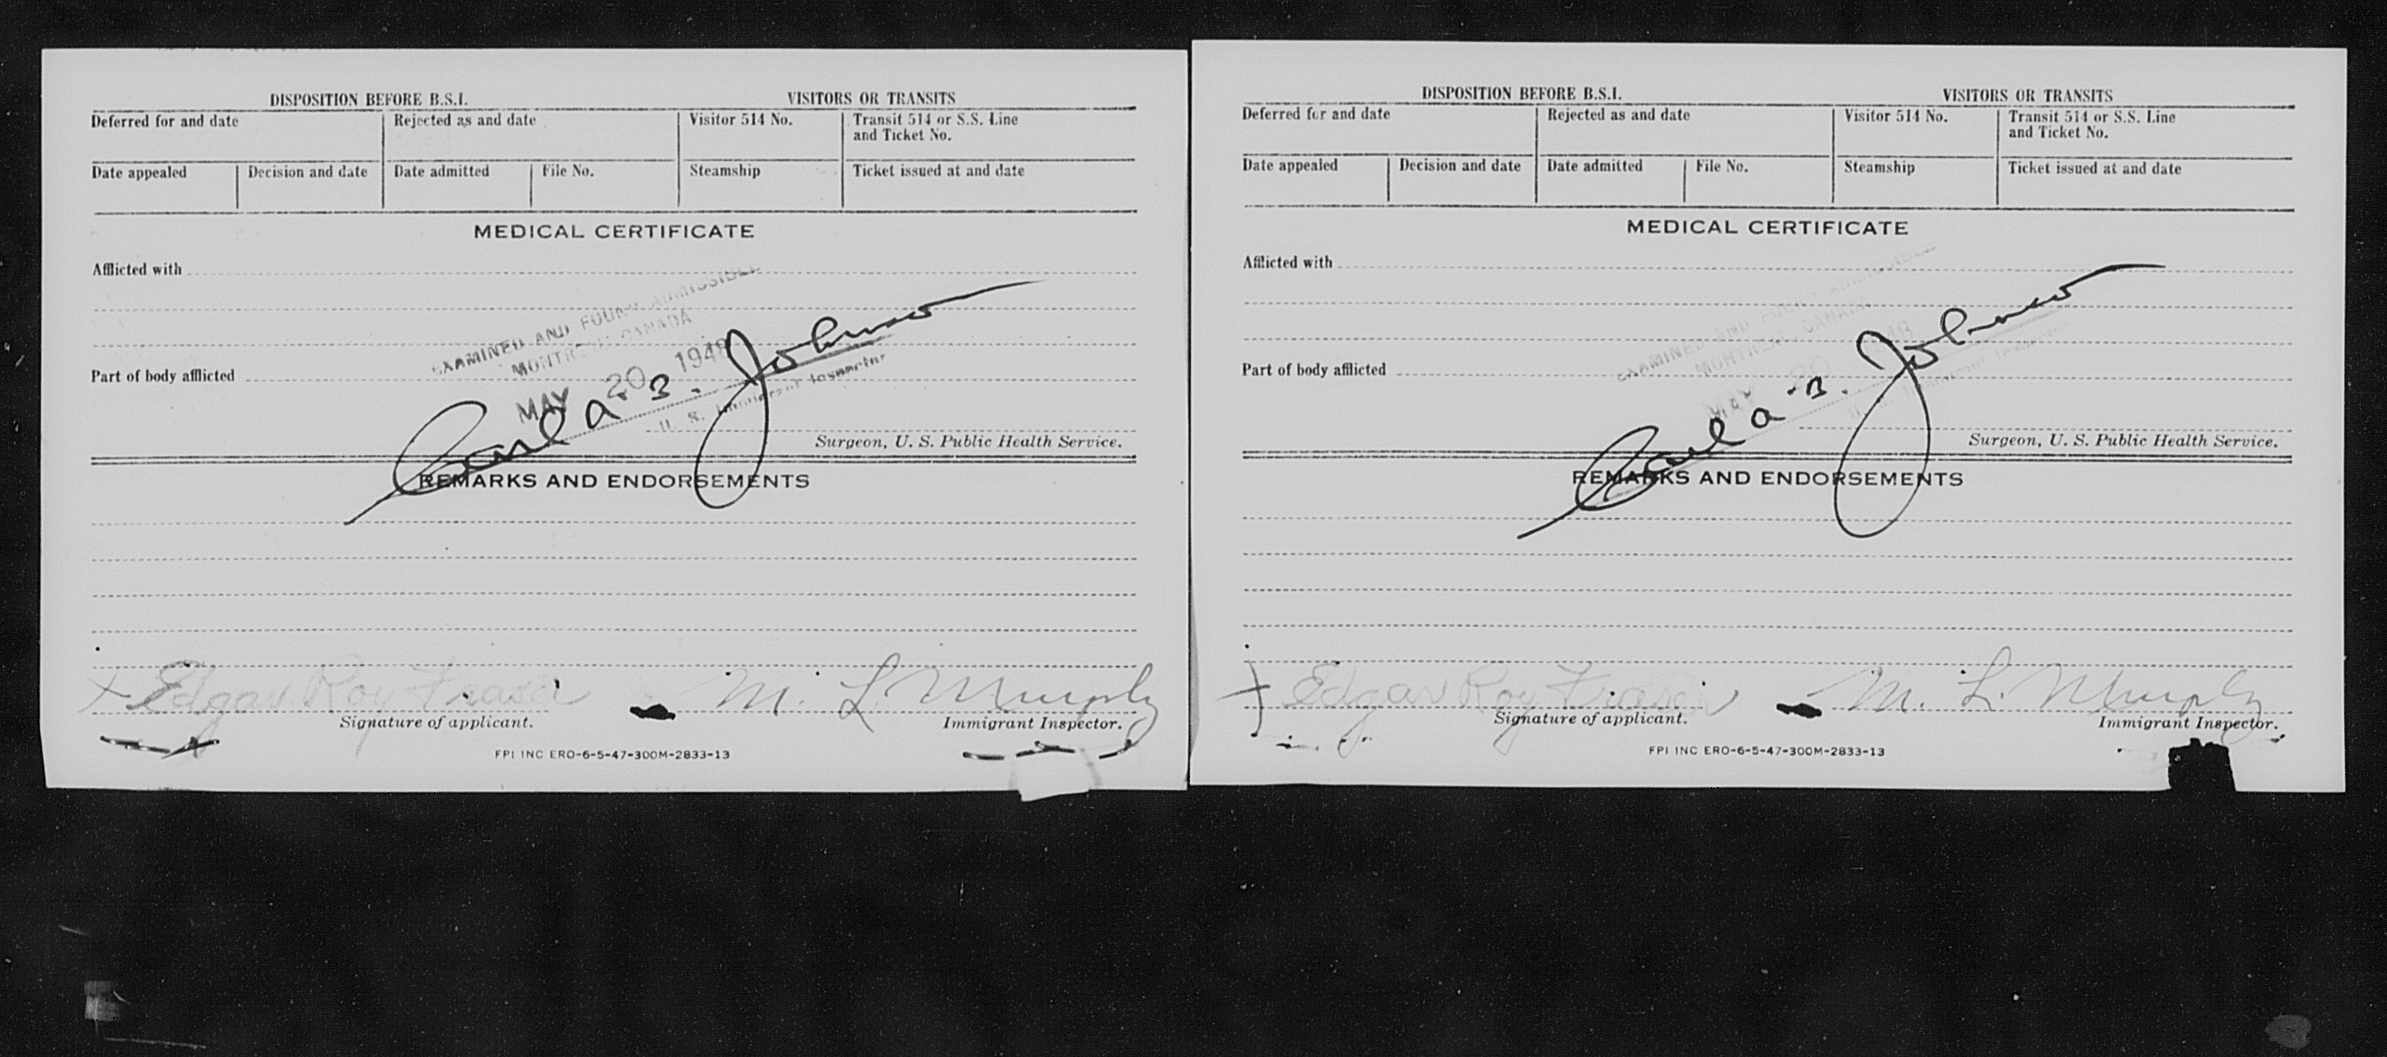 DISPOSITION BEFORE B.S.I. VISITORS OR TRANSITS
Deferred for and date Rejected as and date Visitor 514 No. Transit 514 or S.S. Line
and Ticket No.
Date appealed Decision and date Date admitted File No. Steamship Ticket issued at and date
MEDICAL CERTIFICATE
Afflicted with
EXAMINED AND FOUND ADMISSIBLE
MONTREAL CANADA
MAY 20 1948
Part of body afflicted
Carl A. B. Johnson
U. S. Immigrant Inspector
Surgeon, U. S. Public Health Service.
REMARKS AND ENDORSEMENTS
x Edgar Roy Fraser M. L. Murphy
Signature of applicant. Immigrant Inspector.
FPI INC ERO-6-5-47-300M-2833-13
DISPOSITION BEFORE B.S.I. VISITORS OR TRANSITS
Deferred for and date Rejected as and date Visitor 514 No. Transit 514 or S.S. Line
and Ticket No.
Date appealed Decision and date Date admitted File No. Steamship Ticket issued at and date
MEDICAL CERTIFICATE
Afflicted with
EXAMINED AND FOUND ADMISSIBLE
MONTREAL CANADA
MAY 20 1948
Part of body afflicted
Carl A. B. Johnson
Surgeon, U. S. Public Health Service.
REMARKS AND ENDORSEMENTS
x Edgar Roy Fraser M. L. Murphy
Signature of applicant. Immigrant Inspector.
FPI INC ERO-6-5-47-300M-2833-13